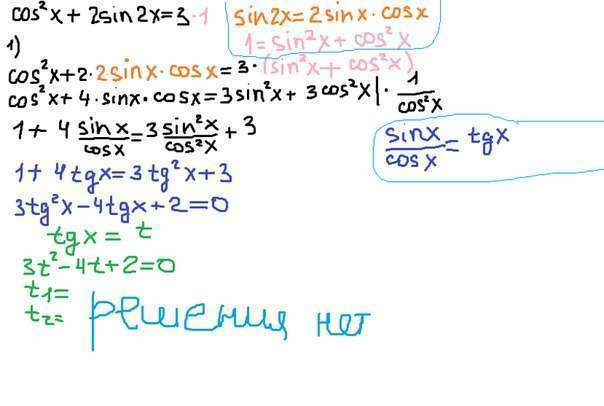 cos²x + 2sin2x = 3 · 1
sin2x = 2sinx · cosx
1 = sin²x + cos²x
1)
cos²x + 2 · 2sinx · cosx = 3 · (sin²x + cos²x)
cos²x + 4 · sinx · cosx = 3sin²x + 3cos²x | · 1/cos²x
1 + 4 sinx/cosx = 3 sin²x/cos²x + 3
sinx/cosx = tgx
1 + 4tgx = 3tg²x + 3
3tg²x - 4tgx + 2 = 0
tgx = t
3t² - 4t + 2 = 0
t1=
t2=
решения нет